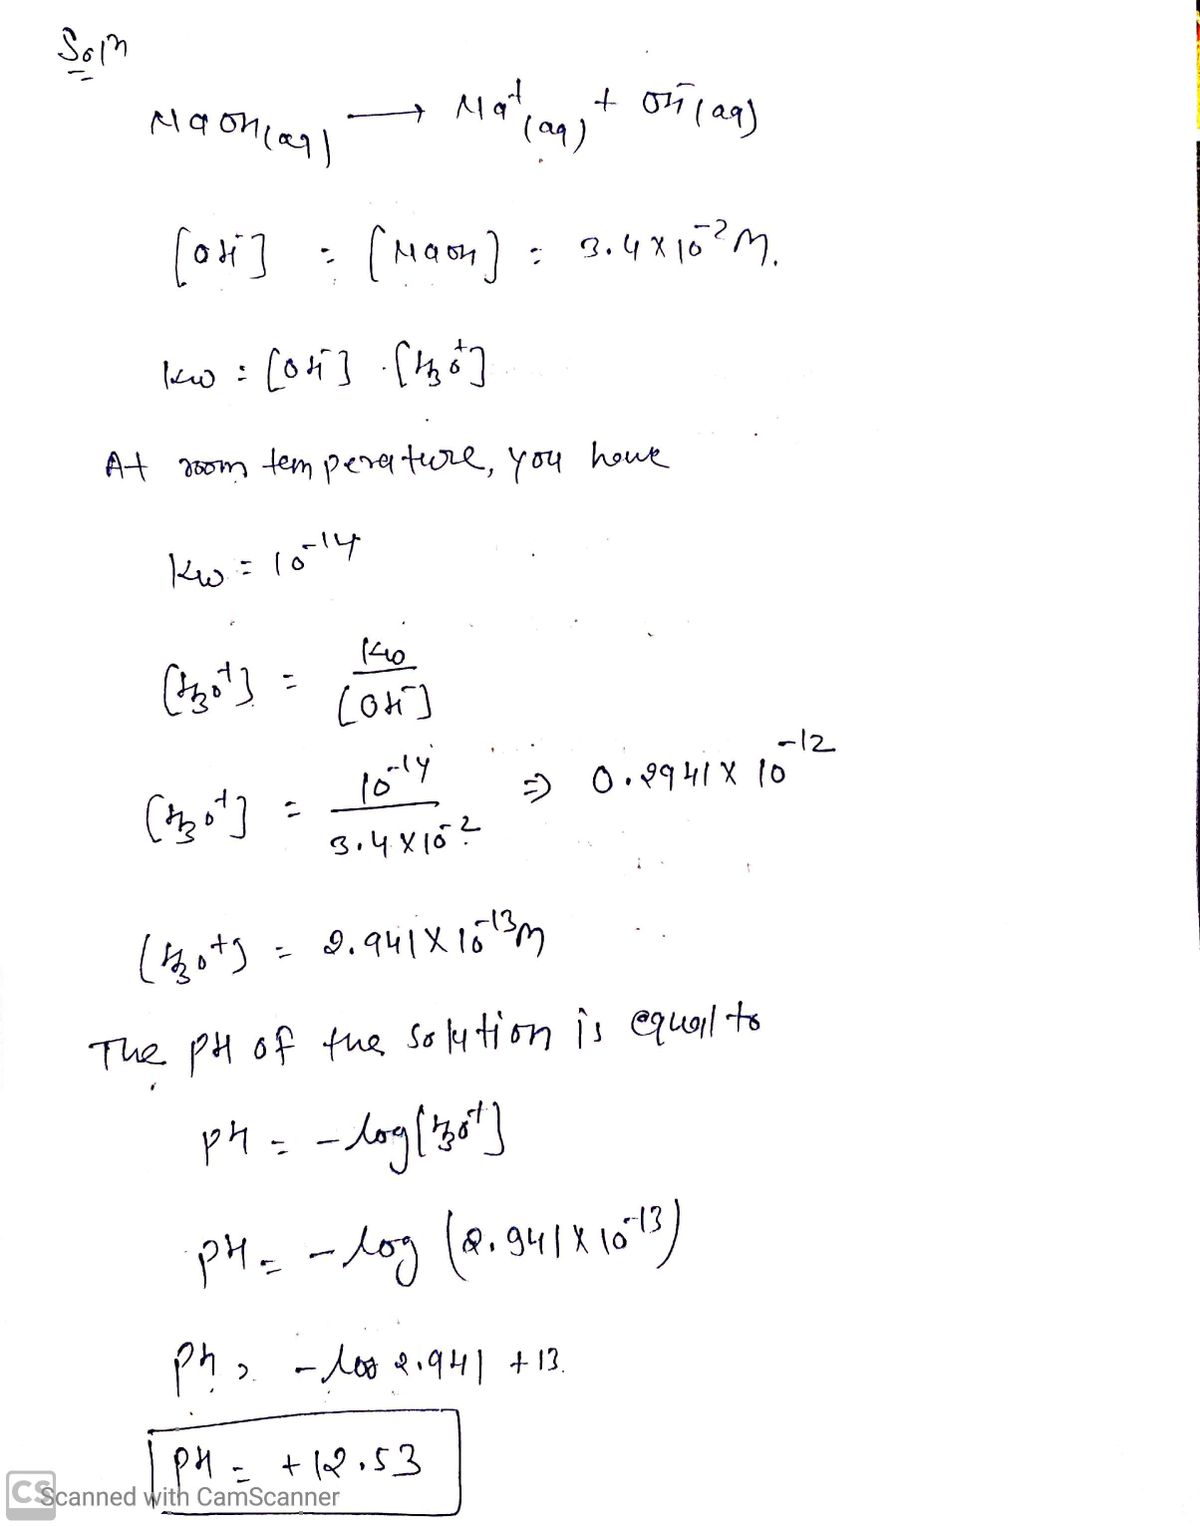 Soln
NaOH(aq) → Na⁺(aq) + OH⁻(aq)
[OH⁻] = [NaOH] = 3.4 × 10⁻² M.
Kw = [OH⁻] . [H₃O⁺]
At room temperature, you have
Kw = 10⁻¹⁴
[H₃O⁺] = Kw / [OH⁻]
[H₃O⁺] = 10⁻¹⁴ / 3.4 × 10⁻² ⇒ 0.2941 × 10⁻¹²
[H₃O⁺] = 2.941 × 10⁻¹³ M
The PH of the solution is equal to
PH = - log [H₃O⁺]
PH = - log (2.941 × 10⁻¹³)
PH = - log 2.941 + 13.
PH = + 12.53
CS Scanned with CamScanner